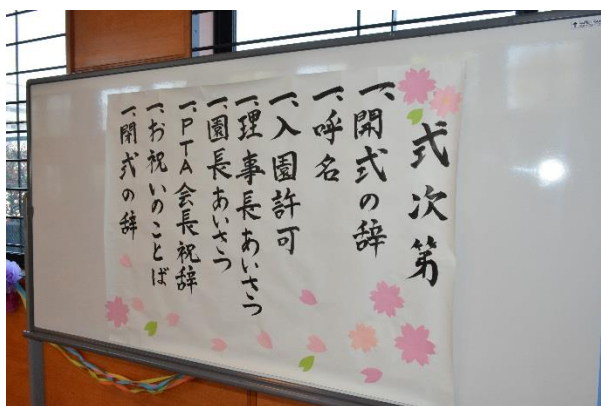 式次第
一、開式の辞
一、呼名
一、入園許可
一、理事長あいさつ
一、園長あいさつ
一、PTA会長祝辞
一、お祝いのことば
一、閉式の辞